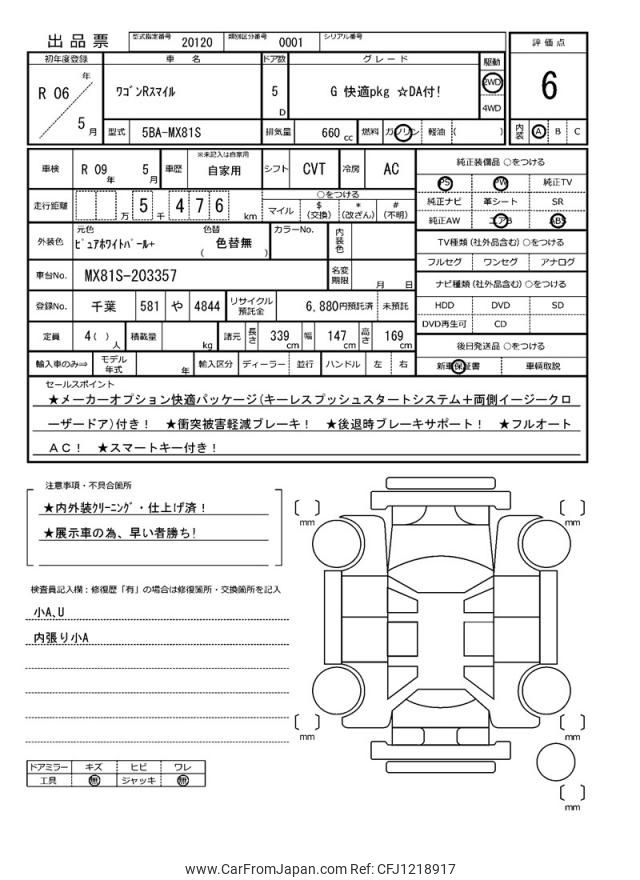 出品票
型式指定番号 20120 類別区分番号 0001 シリアル番号
評価点
6
内装 A B C
初年度登録 車名 ドア数 グレード 駆動
R 06 年 5 月
ワゴンRスマイル
5 D
G 快適pkg ☆DA付!
2WD
4WD
型式 5BA-MX81S 排気量 660 cc 燃料 ガソリン 軽油 ( )
車検 R 09 年 5 月 車歴 ※未記入は自家用 自家用 シフト CVT 冷房 AC
純正装備品 ○をつける
PS PW 純正TV
純正ナビ 革シート SR
純正AW エアB ABS
走行距離 万 5 千 4 7 6 km
○をつける
マイル $(交換) *(改ざん) #(不明)
外装色 元色 ピュアホワイトパール+ 色替 ( 色替無 ) カラーNo. 内装色
TV種類 (社外品含む) ○をつける
フルセグ ワンセグ アナログ
車台No. MX81S-203357 名変期限 月 日
ナビ種類 (社外品含む) ○をつける
HDD DVD SD
DVD再生可 CD
登録No. 千葉 581 や 4844 リサイクル預託金 6,880円預託済 未預託
定員 4( ) 人 積載量 kg 諸元 長さ 339 cm 幅 147 cm 高さ 169 cm
後日発送品 ○をつける
新車保証書 車輌取説
輸入車のみ⇒ モデル年式 年 輸入区分 ディーラー 並行 ハンドル 左 右
セールスポイント
★メーカーオプション快適パッケージ(キーレスプッシュスタートシステム+両側イージークロ
ーザードア)付き! ★衝突被害軽減ブレーキ! ★後退時ブレーキサポート! ★フルオート
AC! ★スマートキー付き!
注意事項・不具合箇所
★内外装クリーニング・仕上げ済!
★展示車の為、早い者勝ち!
検査員記入欄:修復歴「有」の場合は修復箇所・交換箇所を記入
小A、U
内張り小A
ドアミラー キズ ヒビ ワレ
工具 無 ジャッキ 無
mm
mm
mm
mm
mm
www.CarFromJapan.com Ref: CFJ1218917